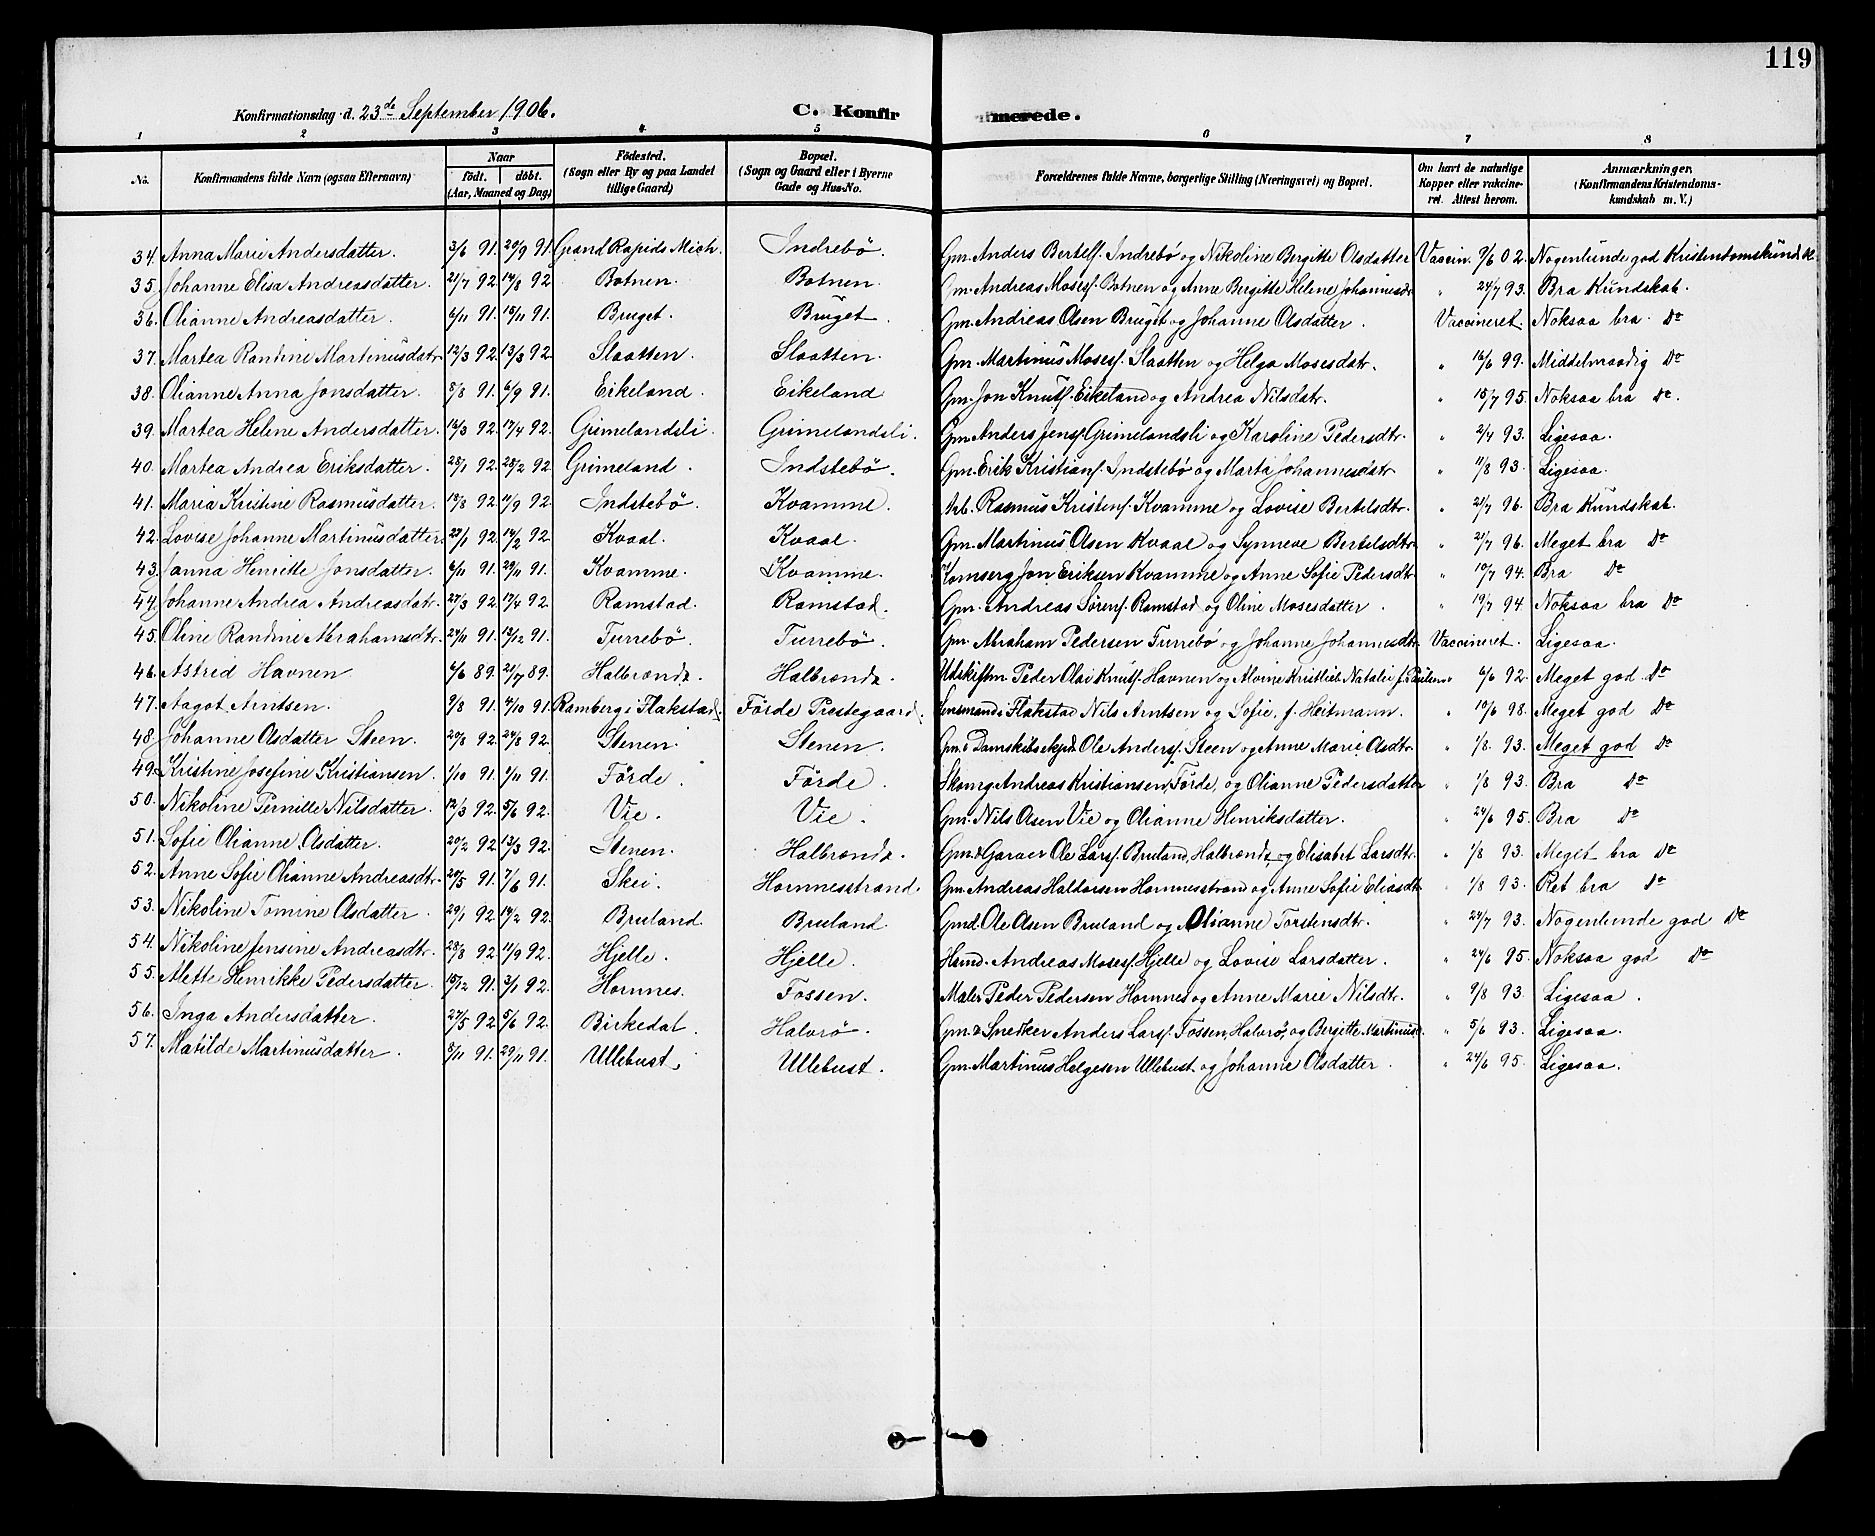 119
Konfirmationsdag d. 23de September 1906. C. Konfirmerede.
1 2 3 4 5 6 7 8
No. Konfirmandens fulde Navn (ogsaa Efternavn) Naar født. døbt. (Aar, Maaned og Dag) Fødested. (Sogn eller By og paa Landet tillige Gaard) Bopæl. (Sogn og Gaard eller i Byerne Gade og Hus-No. Forældrenes fulde Navne, borgerlige Stilling (Næringsvei) og Bopæl. Om havt de naturlige Kopper eller vakcineret. Attest herom. Anmærkninger. (Konfirmandens Kristendomskundskab m. V.)
34. Anna Marie Andersdatter. 3/6 91. 20/9 91. Grand Rapids Mich. Indrebö. Gm. Anders Bertels. Indrebö og Nikoline Bergitte Olsdatter Vaccin. 9/6 02. Nogenlunde god Kristendomskundsk.
35. Johanne Elisa Andreasdatter. 21/7 92 14/8 92 Botnen. Botnen. Gm. Andreas Moses. Botnen og Anne Bergitte Helene Johannesdr " 24/7 93. Bra Kundskab.
36. Olianne Andreasdatter. 6/11 91. 15/11 91. Bruget. Bruget. Gm. Andreas Olsen Bruget og Johanne Olsdatter. Vaccineret. Noksaa bra. Do
37. Martea Randine Martinusdatr. 12/3 92. 13/3 92. Slaatten. Slaatten. Gm. Martinus Moses. Slaatten og Helga Mosesdatr. " 16/6 99. Middelmaadig Do
38. Olianne Anna Jonsdatter. 8/8 91. 6/9 91. Eikeland. Eikeland Gm. Jon Knuts. Eikeland og Andrea Nilsdatr. " 15/7 95. Noksaa bra Do.
39. Martea Helene Andersdatter. 16/3 92. 17/4 92. Grimelandsli. Grimelandsli. Gm. Anders Jens. Grimelandsli og Karoline Pedersdtr. " 2/7 93. Ligesaa.
40. Martea Andrea Eriksdatter. 28/1 92. 28/2 92 Grimeland. Indstebö. Gm. Erik Kristians. Indstebö og Marta Johannesdatr " 11/8 93. Ligesaa.
41. Maria Kristine Rasmusdatter. 18/8 92. 11/9 92. Indstebö. Kvamme. Arb. Rasmus Kristens. Kvamme og Lovise Bertelsdtr. " 21/7 96. Bra Kundskab.
42. Lovise Johanne Martinusdatter. 22/1 92. 14/2 92. Kvaal. Kvaal. Gm. Martinus Olsen Kvaal og Synneve Bertelsdtr " 21/7 96. Meget bra Do
43. Janna Henriette Jonsdatter. 6/11 91. 29/11 91. Kvamme. Kvamme. Jon Eriksen Kvamme og Anne Sofie Pedersdtr " 10/7 94. Bra Do
44. Johanne Andrea Andreasdatr. 27/3 92. 17/4 92. Ramstad. Ramstad. Gm. Andreas Sörens. Ramstad og Oline Mosesdatter. " 19/7 94. Noksaa bra Do
45. Oline Randine Abrahamsdtr. 24/11 91. 13/12 91. Turrebö. Turrebö. Gm. Abraham Pedersen Turrebö og Johanne Johannesdtr. Vaccineret. Ligesaa.
46. Astrid Havnen 6/6 89. 21/7 89. Halbrænds. Halbrænds. Udskiftm. Peder Olai Knuts. Havnen og Alvine Kristlieb Natalie f. Paulsen " 6/6 92. Meget god Do
47. Aagot Arntsen. 9/8 91. 4/10 91. Ramberg i Flakstad. Förde Prestegaard. Lensmand i Flakstad Nils Arntsen og Sofie, f. Heitmann. " 10/6 98. Meget god Do
48. Johanne Olsdatter Steen. 20/8 92. 24/8 92. Stenen. Stenen. Gm. & Damskibsexpd. Ole Anders. Steen og Anne Marie Olsdtr. " 1/8 93. Meget god Do
49. Kristine Josefine Kristiansen. 1/10 91. 1/11 91. Förde. Förde. Skomg Andreas Kristiansen, Förde, og Olianne Pedersdatter " 1/8 93. Bra Do
50. Nikoline Pernille Nilsdatter. 12/3 92. 5/6 92. Vie. Vie. Gm. Nils Olsen Vie og Olianne Henriksdatter. " 24/6 95. Bra Do
51. Sofie Olianne Olsdatter. 20/2 92. 13/3 92. Stenen. Halbrænds. Gm. & Garver Ole Lars. Bruland, Halbrænds, og Elisabet Larsdtr. " 1/8 93. Meget bra Do
52. Anne Sofie Olianne Andreasdtr. 20/5 91. 7/6 91. Skei. Hornnesstrand. Gm. Andreas Haldorsen Hornnesstrand og Anne Sofie Eliasdtr " 1/8 93. Ret bra Do
53. Nikoline Tomine Olsdatter. 29/1 92. 14/2 92. Bruland. Bruland Gmd. Ole Olsen Bruland og Olianne Torstensdtr. " 24/7 93. Nogenlunde god Do
54. Nikoline Jensine Andreasdtr. 28/8 92 11/9 92. Hjelle. Hjelle. Hsmd. Andreas Moses. Hjelle og Lovise Larsdatter. " 24/6 95. Noksaa god Do
55. Alette Henrikke Pedersdatter. 15/12 91. 3/1 92. Hornnes. Fossen. Maler Peder Pedersen Hornnes og Anne Marie Nilsdtr. " 9/8 93. Ligesaa.
56. Inga Andersdatter. 27/5 92. 5/6 92. Birkedal. Halvrö. Gm. & Snedker Anders Lars. Fossen, Halvrö, og Bergitte Martinusd. " 5/6 93. Ligesaa.
57. Matilde Martinusdatter. 8/11 91. 29/11 91. Ullebust. Ullebust. Gm. Martinus Helgesen Ullebust og Johanne Olsdatter. " 24/6 95. Ligesaa.